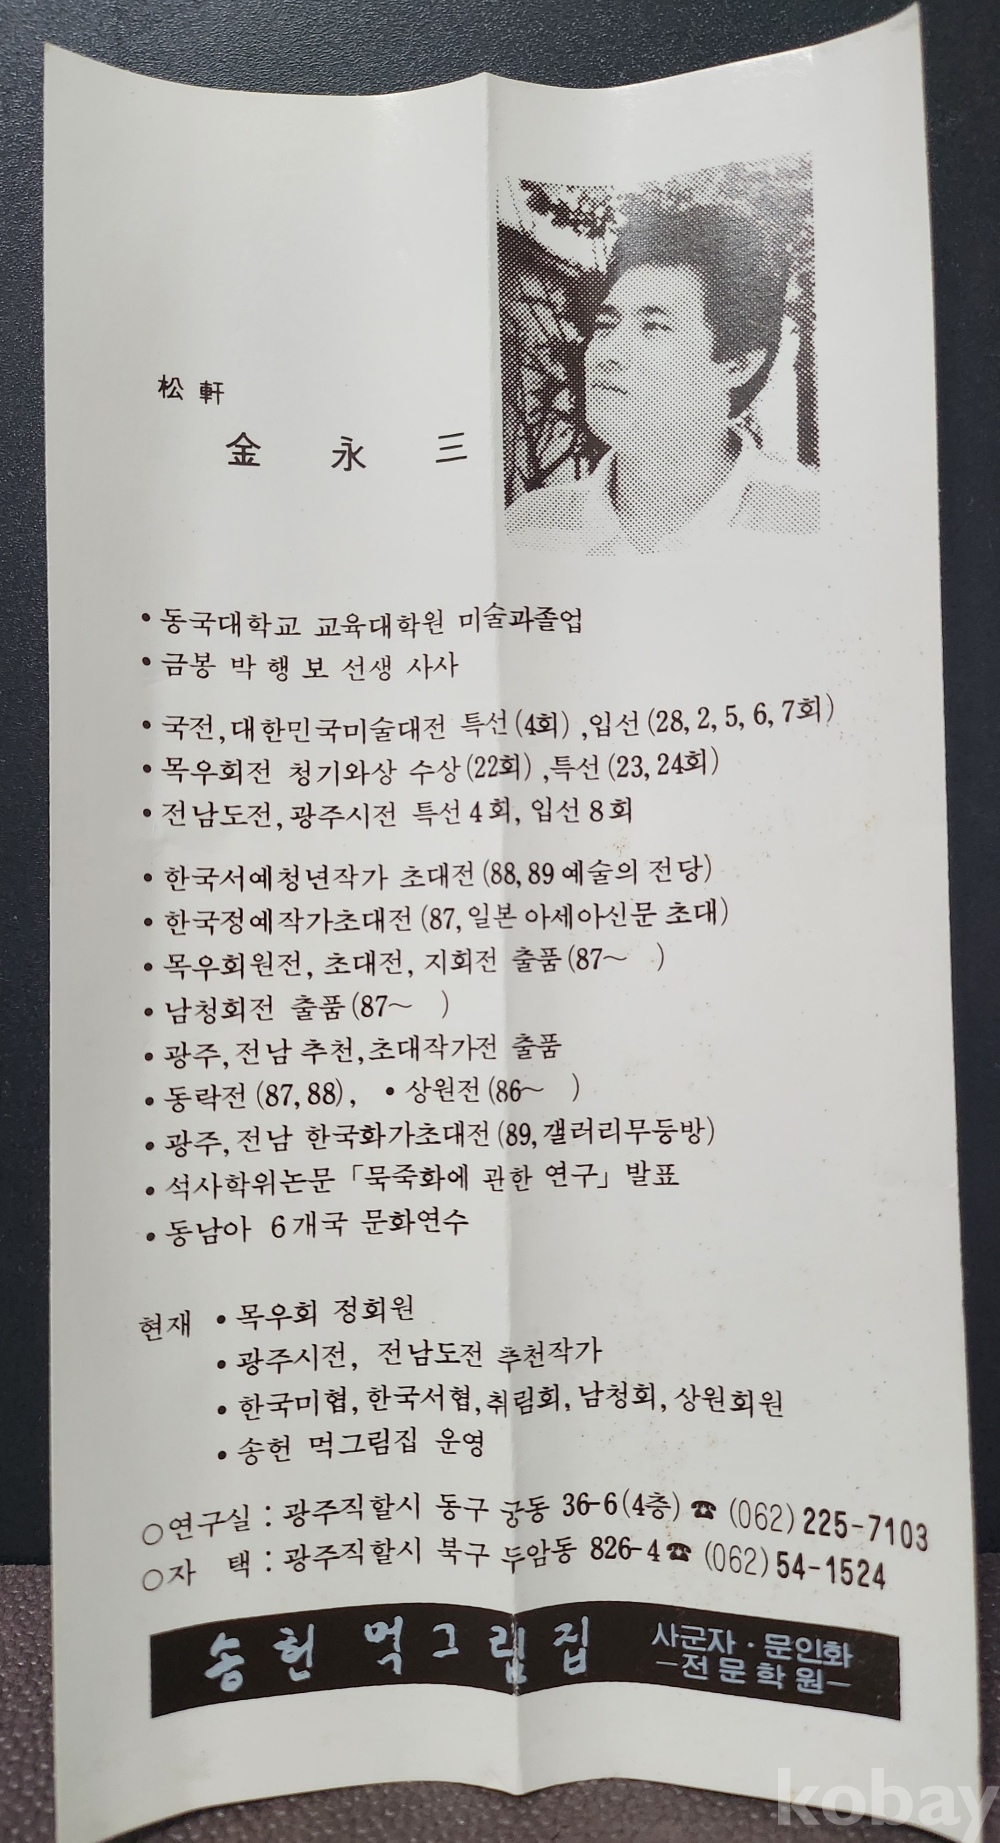 松軒
金永三
• 동국대학교 교육대학원 미술과졸업
• 금봉 박행보 선생 사사
• 국전, 대한민국미술대전 특선(4회), 입선(28, 2, 5, 6, 7회)
• 목우회전 청기와상 수상(22회), 특선(23, 24회)
• 전남도전, 광주시전 특선 4회, 입선 8회
• 한국서예청년작가 초대전(88, 89 예술의 전당)
• 한국정예작가초대전(87, 일본 아세아신문 초대)
• 목우회원전, 초대전, 지회전 출품(87~ )
• 남청회전 출품(87~ )
• 광주, 전남 추천, 초대작가전 출품
• 동락전(87, 88), • 상원전(86~ )
• 광주, 전남 한국화가초대전(89, 갤러리무등방)
• 석사학위논문 「묵죽화에 관한 연구」 발표
• 동남아 6개국 문화연수
현재 • 목우회 정회원
• 광주시전, 전남도전 추천작가
• 한국미협, 한국서협, 취림회, 남청회, 상원회원
• 송헌 먹그림집 운영
○연구실 : 광주직할시 동구 궁동 36-6(4층) ☎ (062) 225-7103
○자 택 : 광주직할시 북구 두암동 826-4 ☎ (062) 54-1524
송헌 먹그림집 사군자·문인화
-전문학원-
kobay